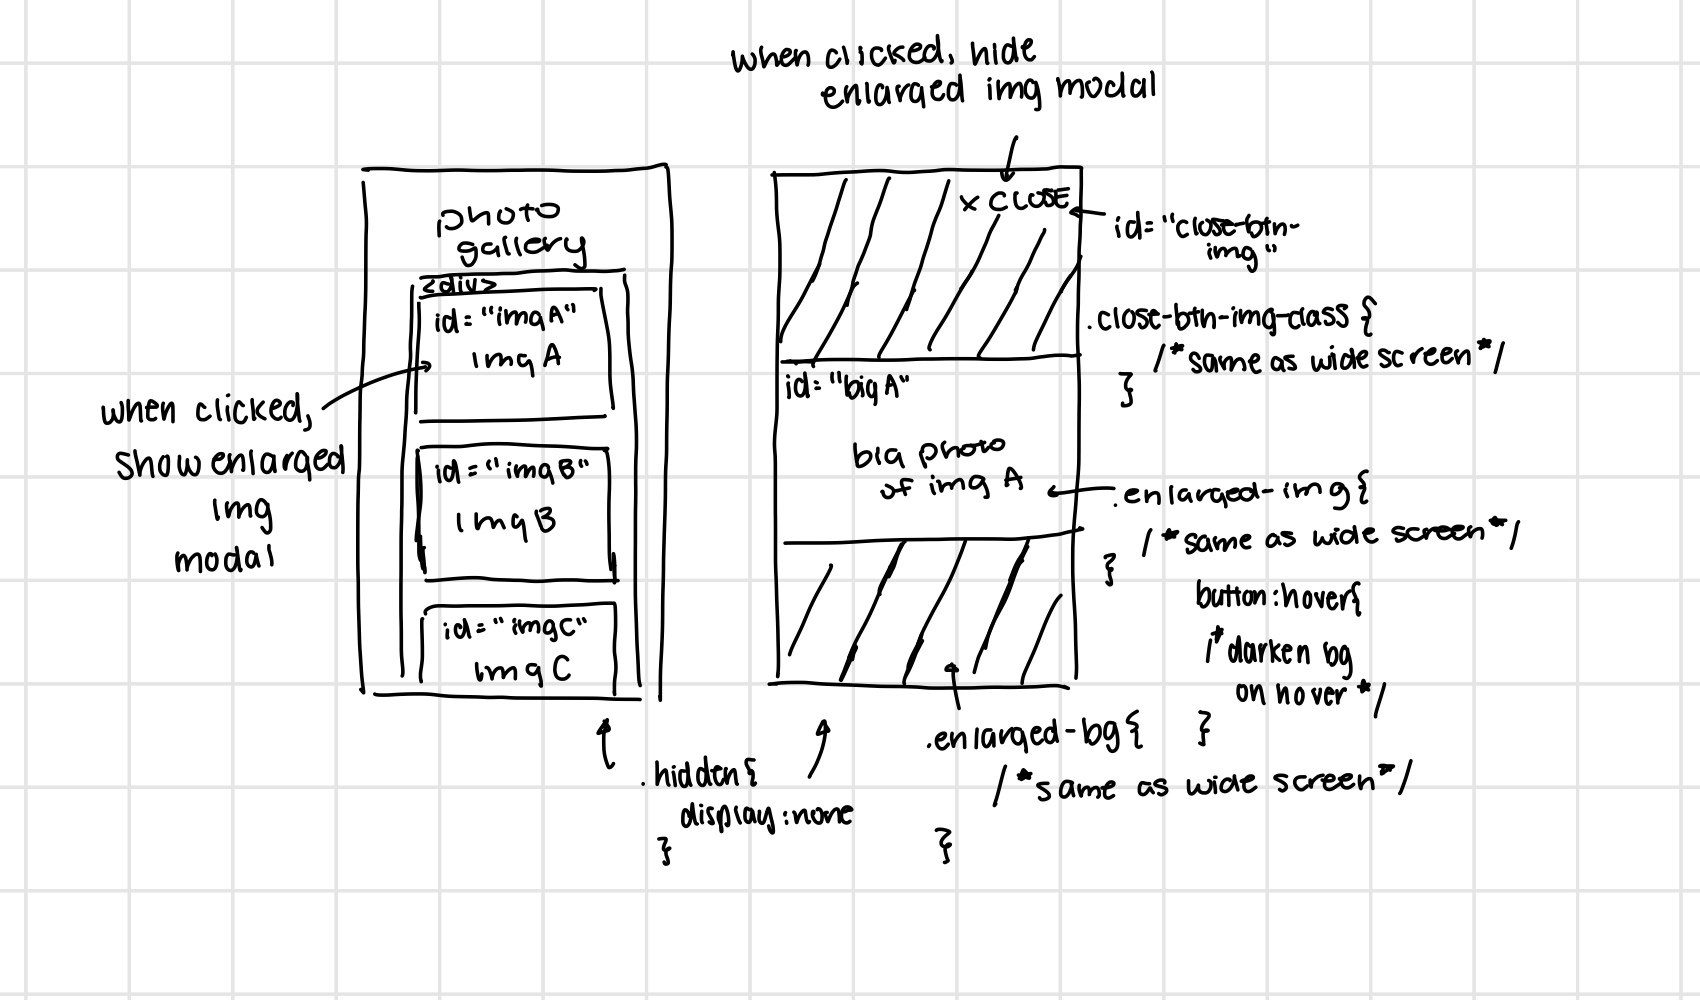 when clicked, hide
enlarged img modal
photo
gallery
<div>
id="imgA"
imgA
when clicked,
show enlarged
img
modal
id="imgB"
imgB
id="imgC"
imgC
x CLOSE
id="close-btn-
img"
.close-btn-img-class{
/*same as wide screen*/
}
id="bigA"
big photo
of img A
.enlarged-img{
/*same as wide screen*/
}
button:hover{
/*darken bg
on hover*/
}
.enlarged-bg{
/*same as wide screen*/
}
.hidden{
display:none
}